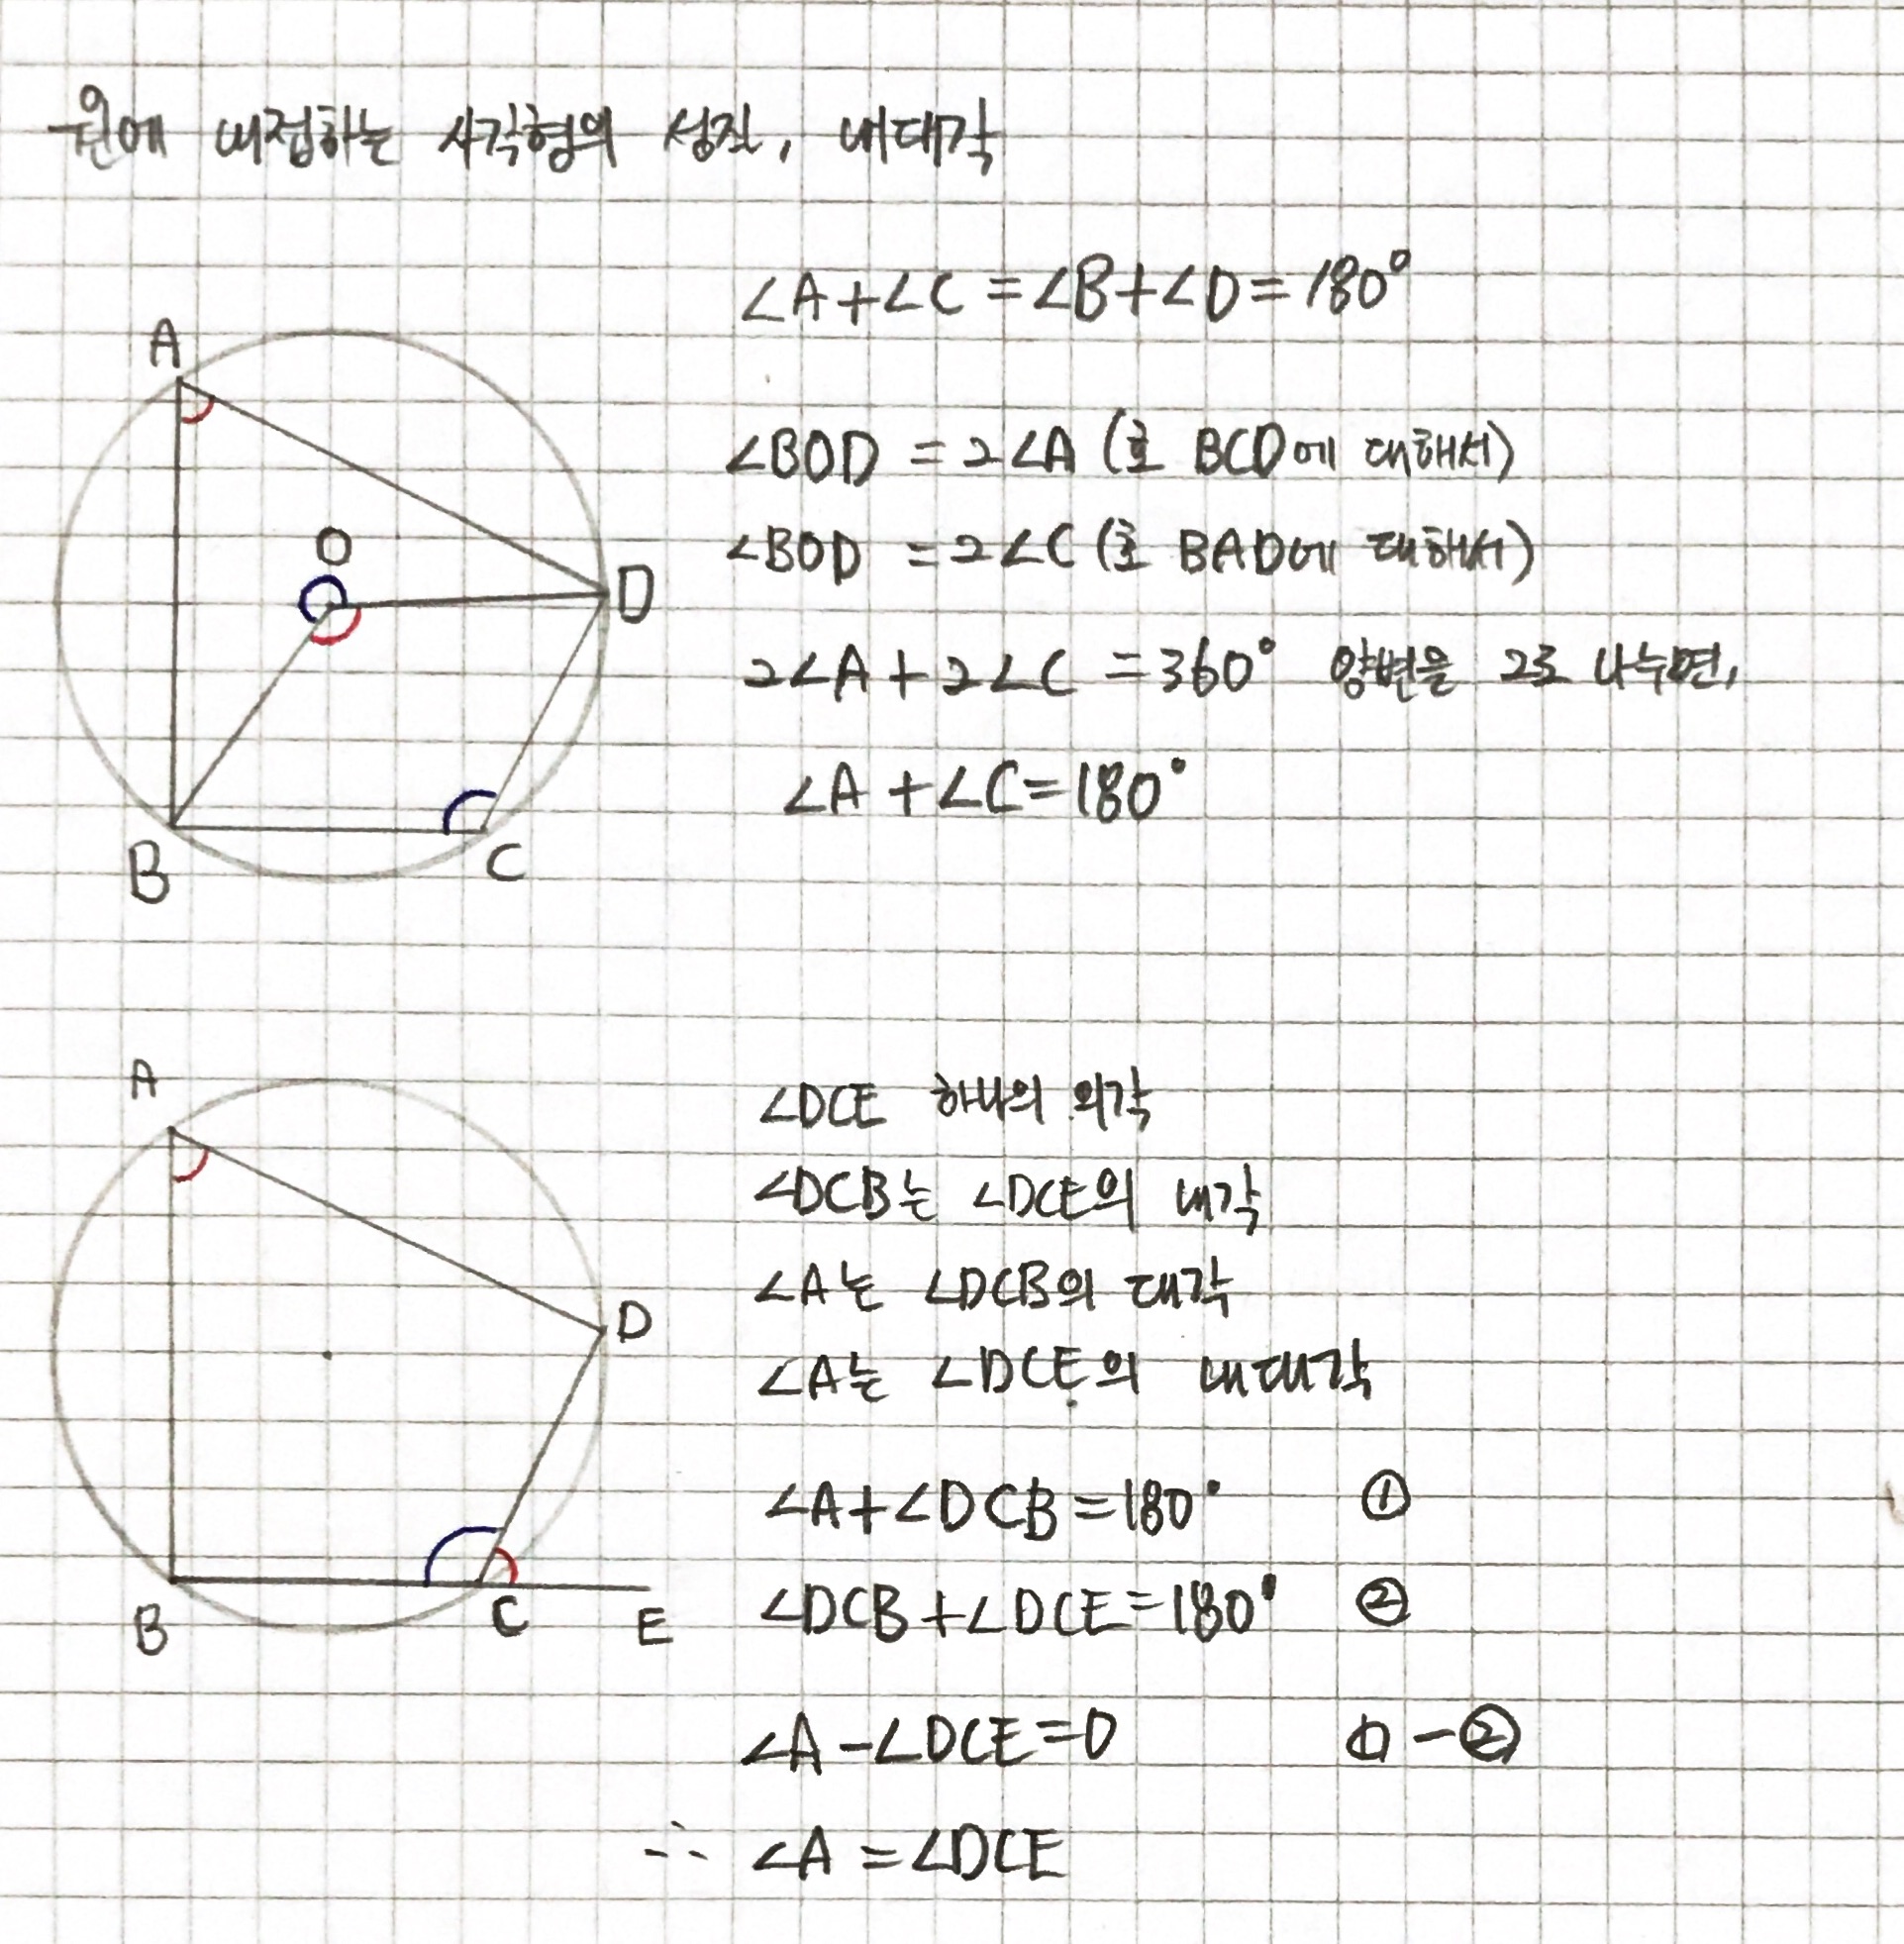 원에 내접하는 사각형의 성질, 내대각
∠A+∠C=∠B+∠D=180°
A
O
D
B
C
∠BOD = 2∠A (호 BCD에 대해서)
∠BOD = 2∠C (호 BAD에 대해서)
2∠A + 2∠C = 360° 양변을 2로 나누면,
∠A + ∠C = 180°
A
D
B
C
E
∠DCE 하나의 외각
∠DCB는 ∠DCE의 내각
∠A는 ∠DCB의 대각
∠A는 ∠DCE의 내대각
∠A+∠DCB=180° ①
∠DCB+∠DCE=180° ②
∠A-∠DCE=0 ①-②
∴ ∠A=∠DCE